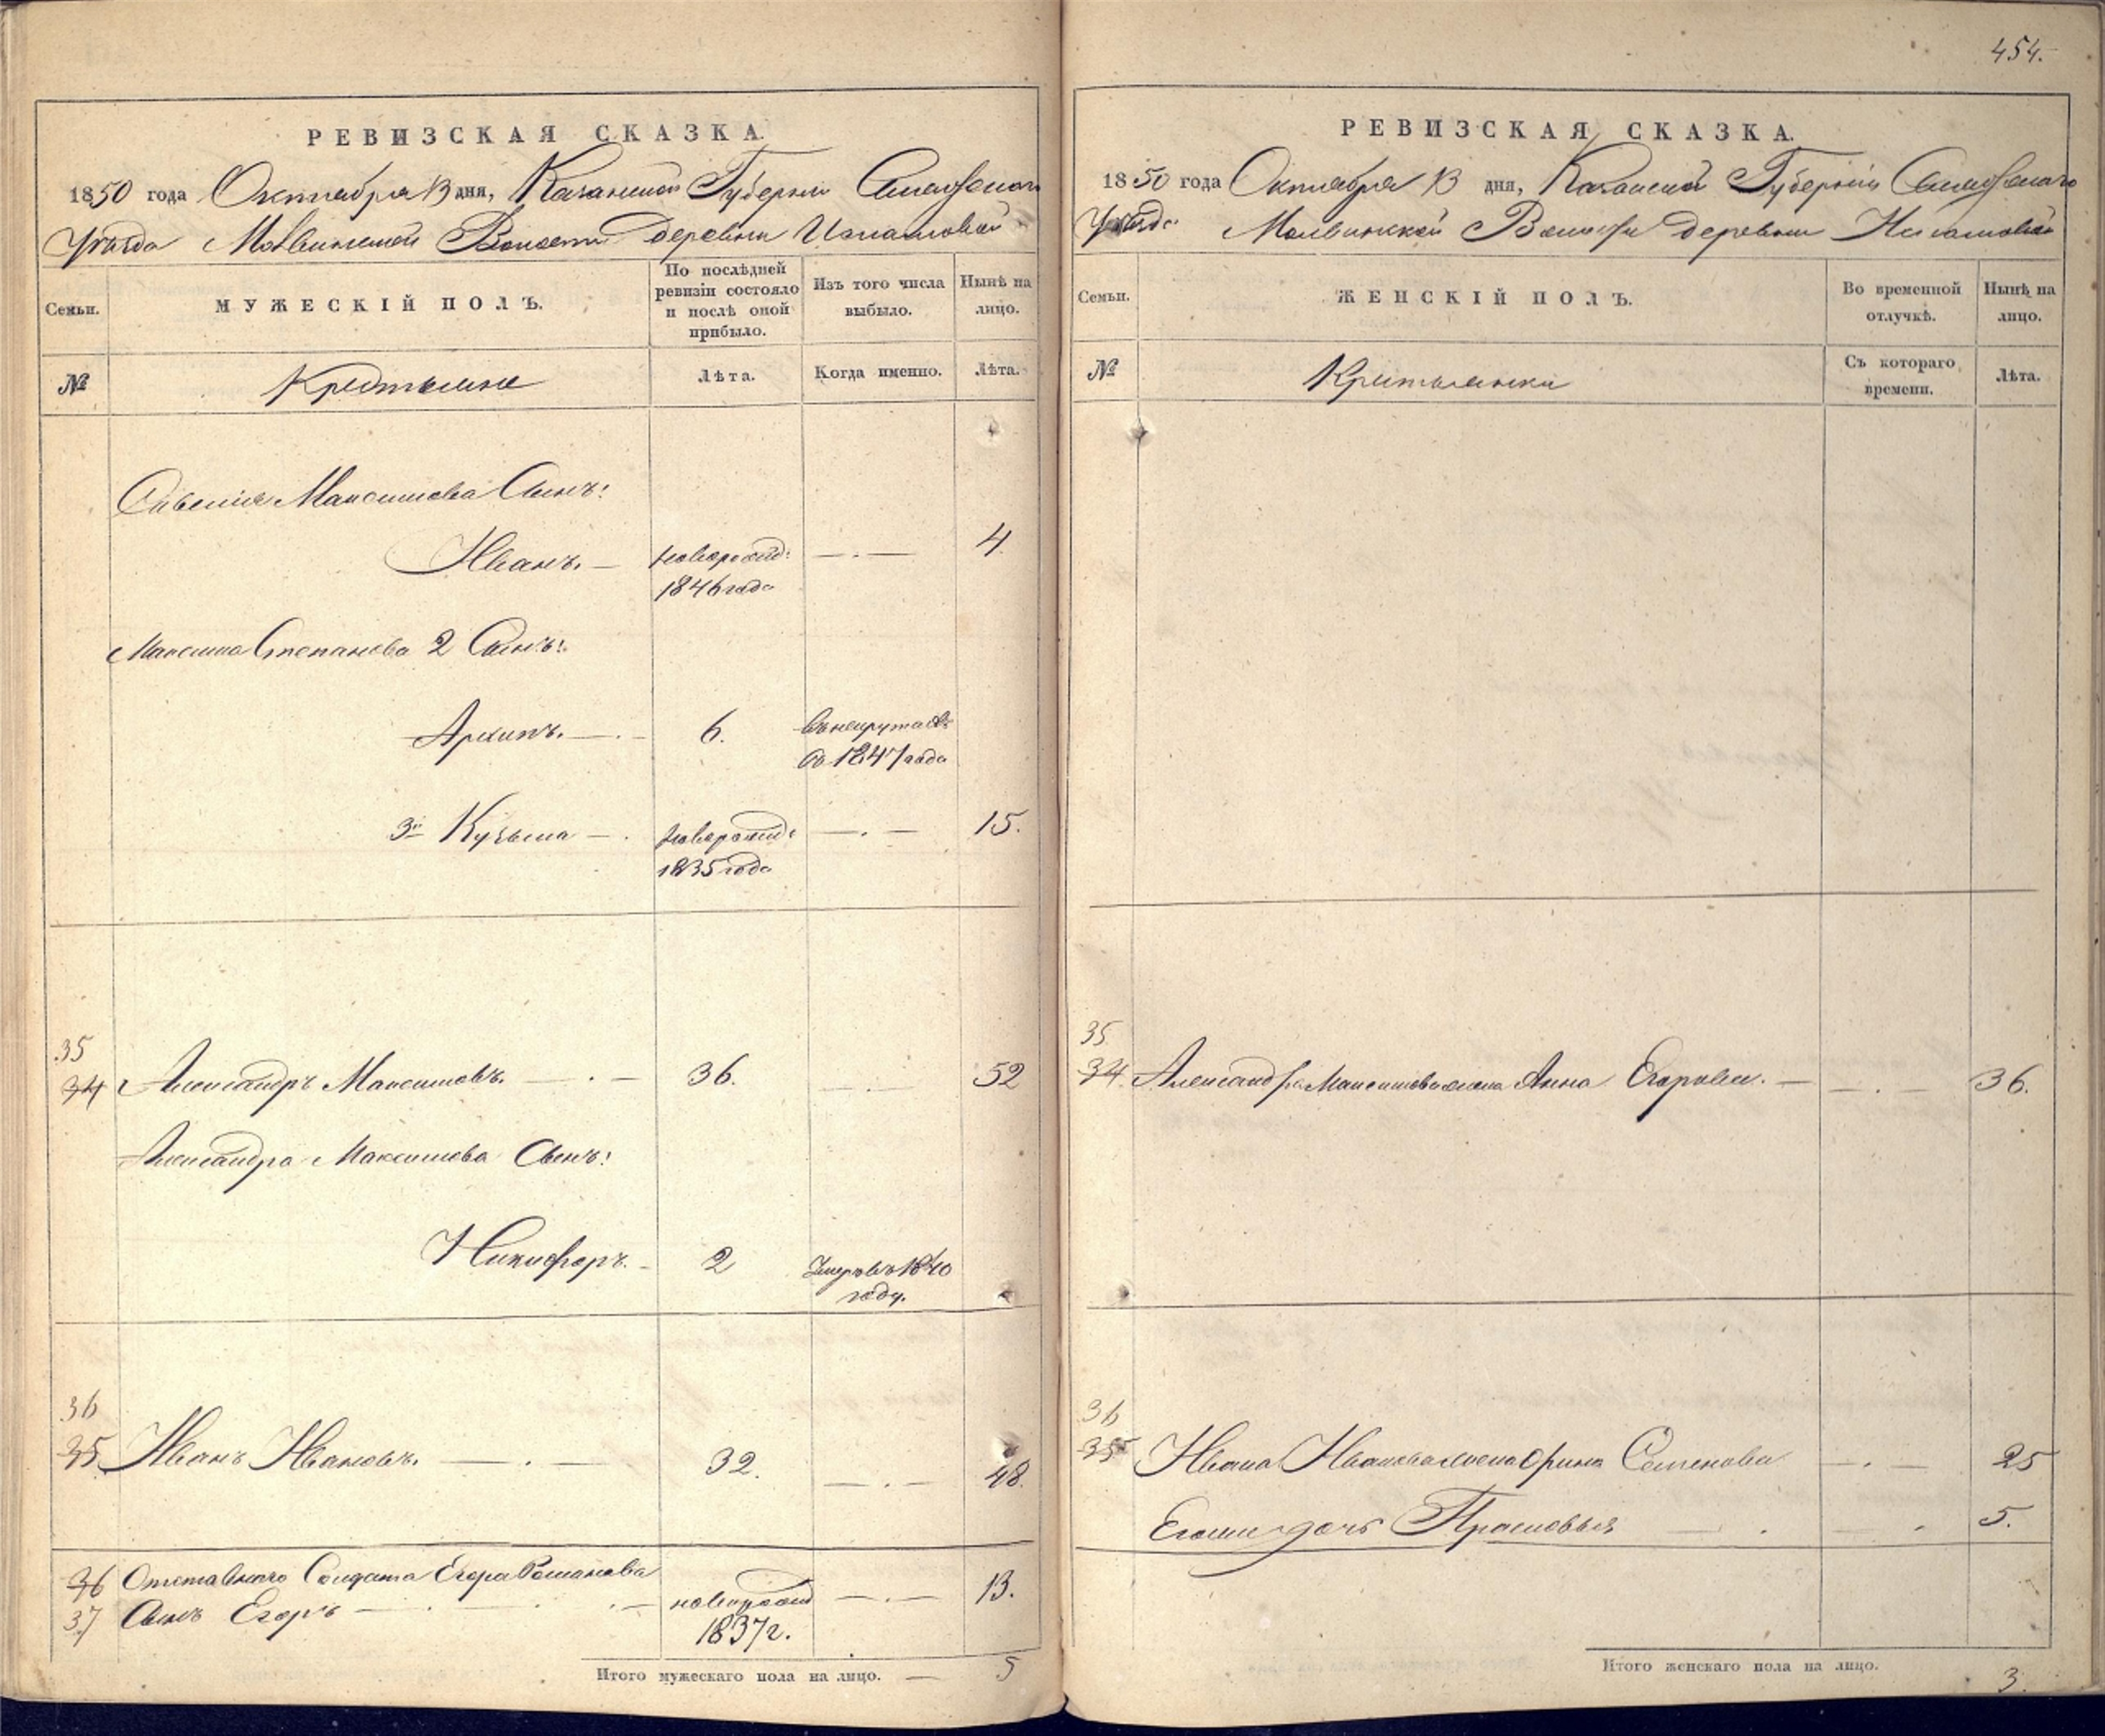 РЕВИЗСКАЯ СКАЗКА.
1850 года Октября 13 дня, Казанской Губерніи
Уѣзда Волости деревни
Семьи.
МУЖЕСКІЙ ПОЛЪ.
По послѣдней ревизіи состояло и послѣ оной прибыло.
Изъ того числа выбыло.
Нынѣ на лицо.
№
Крестьяне
Лѣта.
Когда именно.
Лѣта.
Максимова Сынъ:
Иванъ. — новорожд: — . — 4
1846 года
Максима Степанова 2 Сынъ:
Архипъ. — . — 6. въ рекруты
въ 1847 года
3й Кузьма — . новорожд: — . — 15.
1835 года
35
34 Александръ Максимовъ. — . — 36. — . — 52
Александра Максимова Сынъ:
Никифоръ. — 2 Умеръ въ 1840
году.
36
35 Иванъ Ивановъ. — . — 32. — . — 48.
36 Отставнаго Солдата Егора Романова
37 Сынъ Егоръ — . — новорожд — . — 13.
1837 г.
Итого мужескаго пола на лицо. — 5
454.
РЕВИЗСКАЯ СКАЗКА.
1850 года Октября 13 дня, Казанской Губерніи
Уѣзда Волости деревни
Семьи.
ЖЕНСКІЙ ПОЛЪ.
Во временной отлучкѣ.
Нынѣ на лицо.
№
Крестьянки
Съ котораго времени.
Лѣта.
35
34. Александра Максимова жена Анна Егорова. — — . — 36.
36
35 Ивана Иванова жена Орина Семенова — . — 25
Егоши дочь Прасковья — . — . 5.
Итого женскаго пола на лицо. 3.